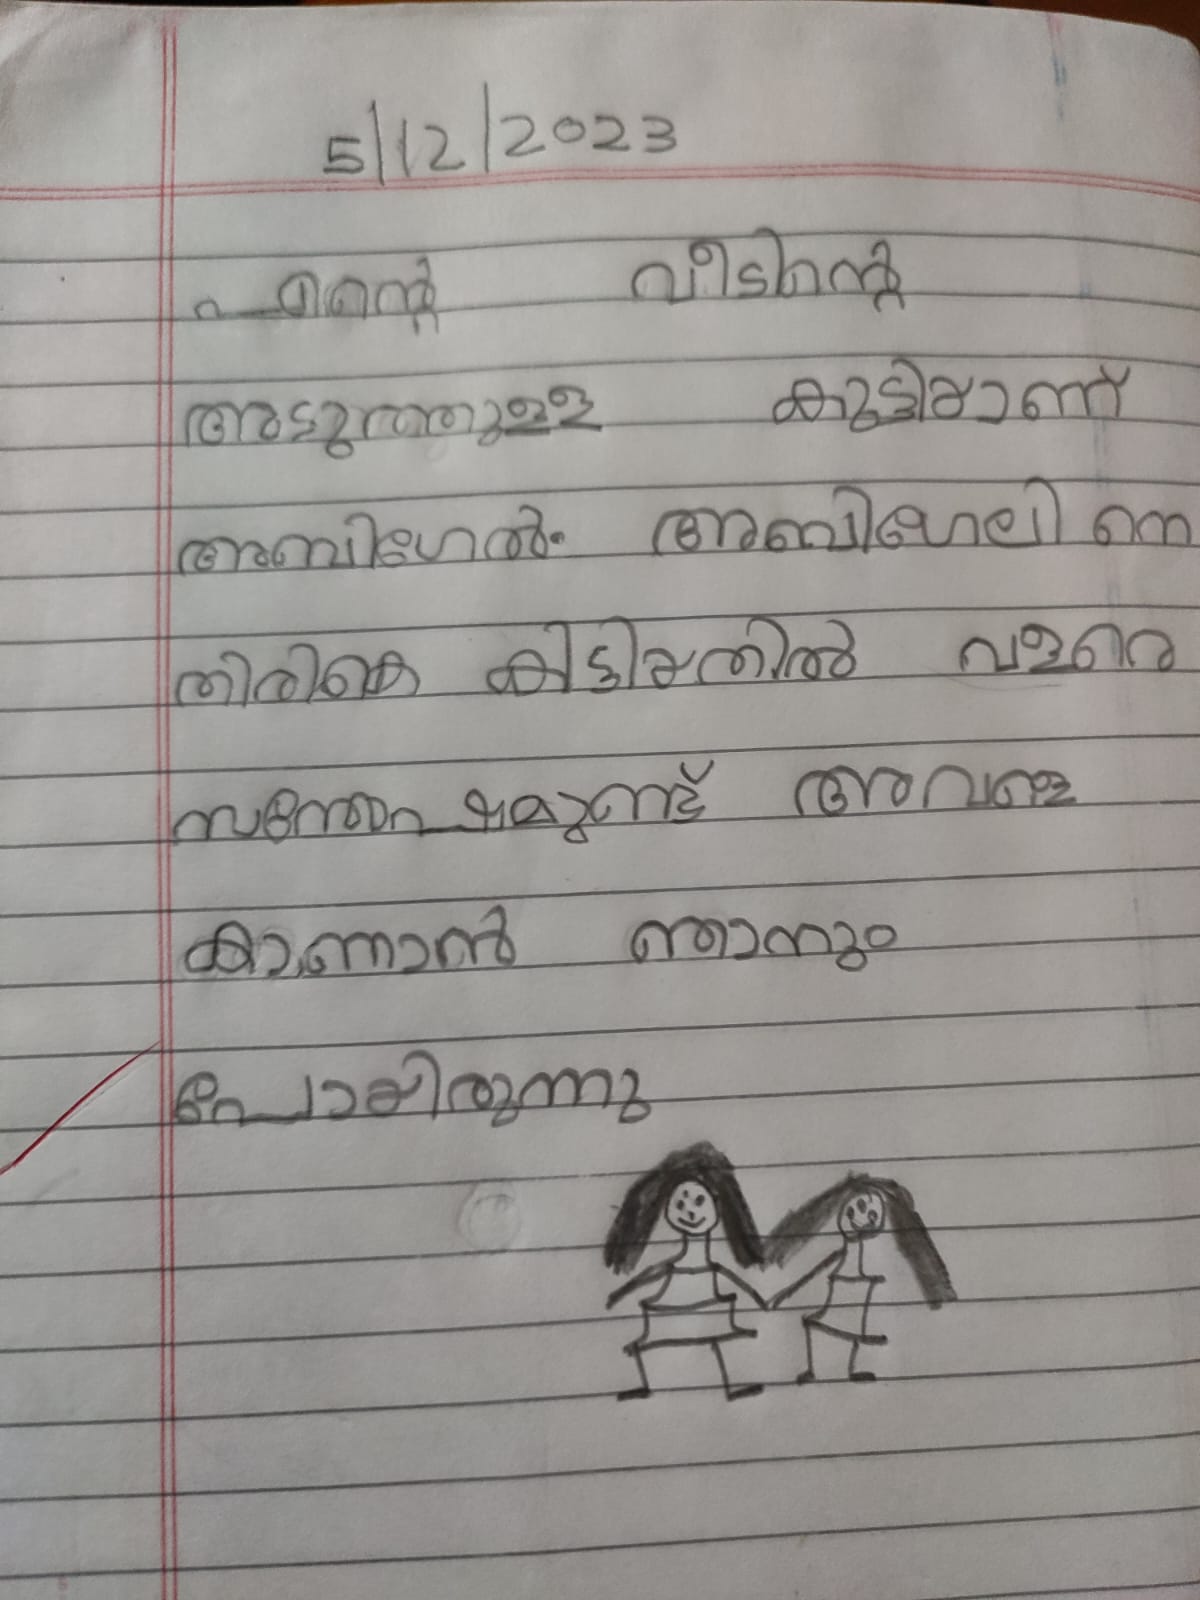 5/12/2023
എന്റെ വീടിന്റെ
അടുത്തുള്ള കുട്ടിയാണ്
അബിഗേൽ. അബിഗേലിനെ
തിരികെ കിട്ടിയതിൽ വളരെ
സന്തോഷമുണ്ട് അവളെ
കാണാൻ ഞാനും
പോയിരുന്നു